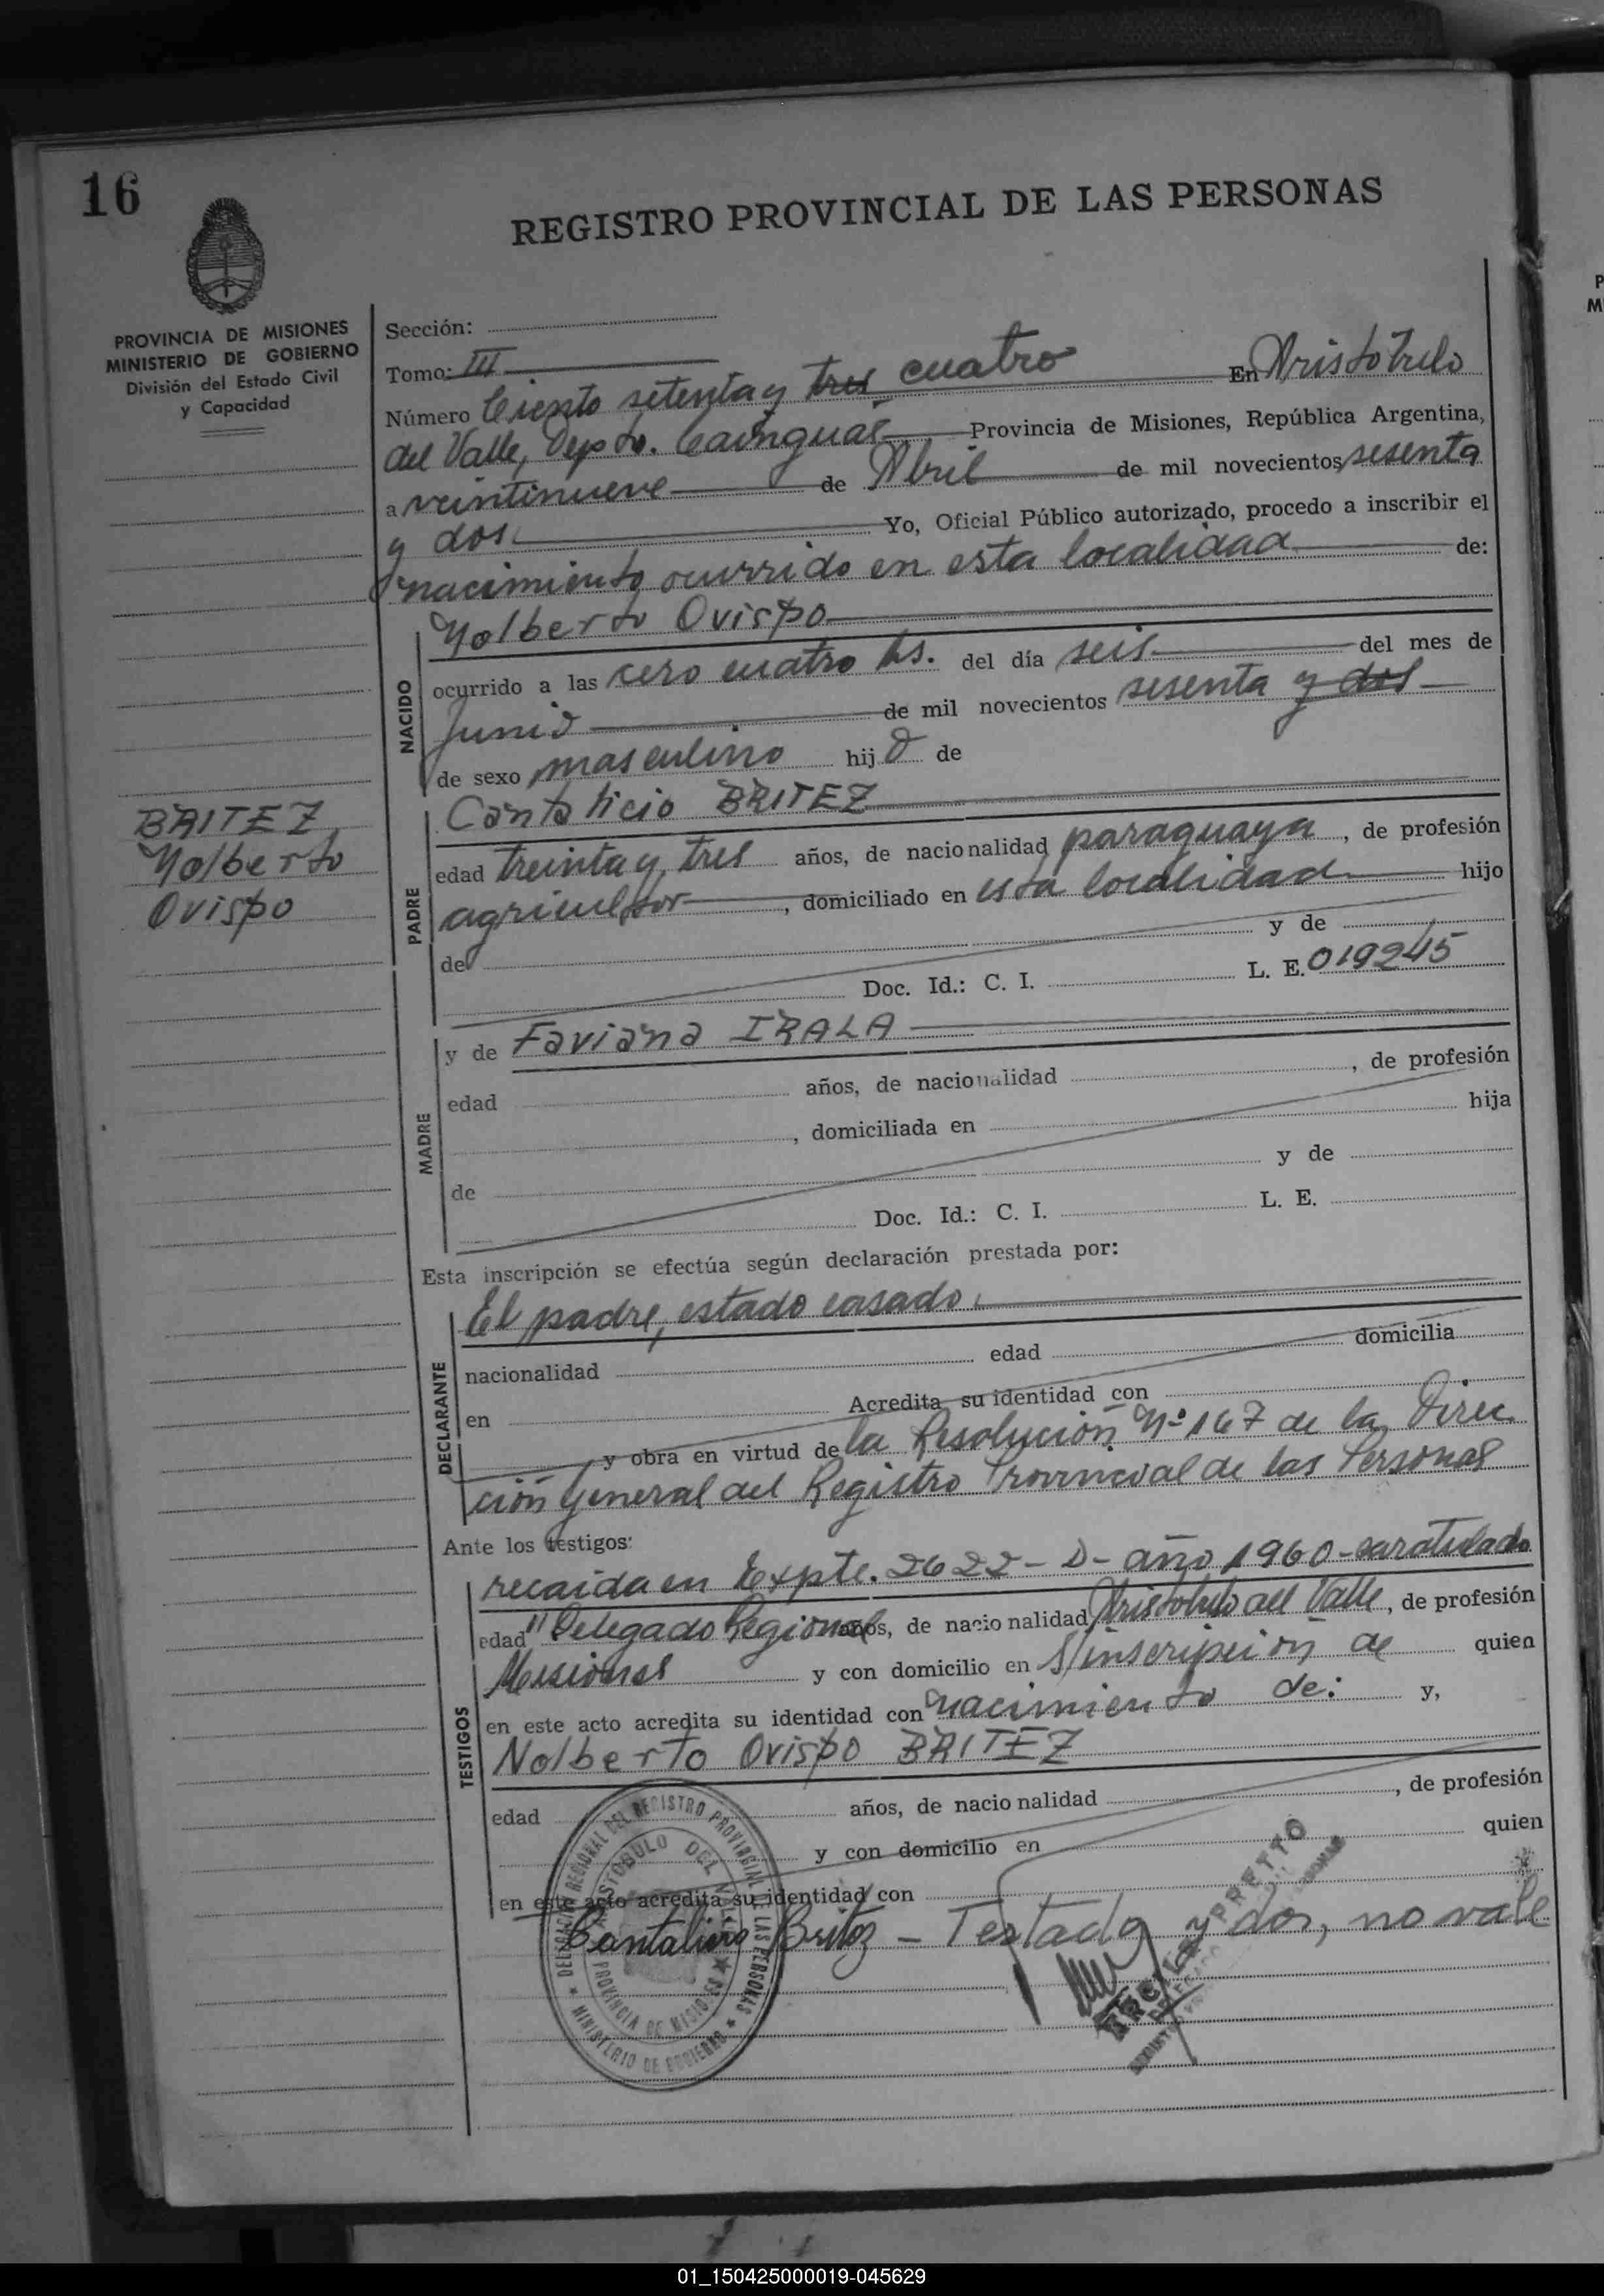 16
REGISTRO PROVINCIAL DE LAS PERSONAS
PROVINCIA DE MISIONES
MINISTERIO DE GOBIERNO
División del Estado Civil
y Capacidad
Sección:
Tomo: III
Número Ciento setenta y tres cuatro En Aristóbulo
del Valle, Depto. Cainguás Provincia de Misiones, República Argentina,
a veintinueve de Abril de mil novecientos sesenta
y dos. Yo, Oficial Público autorizado, procedo a inscribir el
nacimiento ocurrido en esta localidad de:
Nolberto Ovispo
NACIDO
ocurrido a las cero cuatro hs. del día seis del mes de
Junio de mil novecientos sesenta y dos
de sexo masculino hijo de
BRITEZ,
Nolberto
Ovispo
PADRE
Cantalicio BRITEZ
edad treinta y tres años, de nacionalidad paraguaya, de profesión
agricultor, domiciliado en esta localidad hijo
de y de
Doc. Id.: C. I. L. E. 019245
MADRE
y de Faviana IRALA
edad años, de nacionalidad , de profesión
, domiciliada en hija
de y de
Doc. Id.: C. I. L. E.
Esta inscripción se efectúa según declaración prestada por:
DECLARANTE
El padre, estado casado.
nacionalidad edad domicilia
en Acredita su identidad con
y obra en virtud de la Resolución Nº 167 de la Direc
ción General del Registro Provincial de las Personas
Ante los testigos:
TESTIGOS
recaída en Expte. 2622-D-año 1960-caratulado
edad "Delegado Regional años, de nacionalidad Aristóbulo del Valle, de profesión
Misiones y con domicilio en s/inscripción de quien
en este acto acredita su identidad con nacimiento de: y,
Nolberto Ovispo BRITEZ
edad años, de nacionalidad , de profesión
y con domicilio en quien
en este acto acredita su identidad con
Cantalicio Britez - Testado y dos, no vale
DELEGACION REGIONAL DEL REGISTRO PROVINCIAL DE LAS PERSONAS
ARISTOBULO DEL VALLE
PROVINCIA DE MISIONES
MINISTERIO DE GOBIERNO
PRETTO
01_150425000019-045629